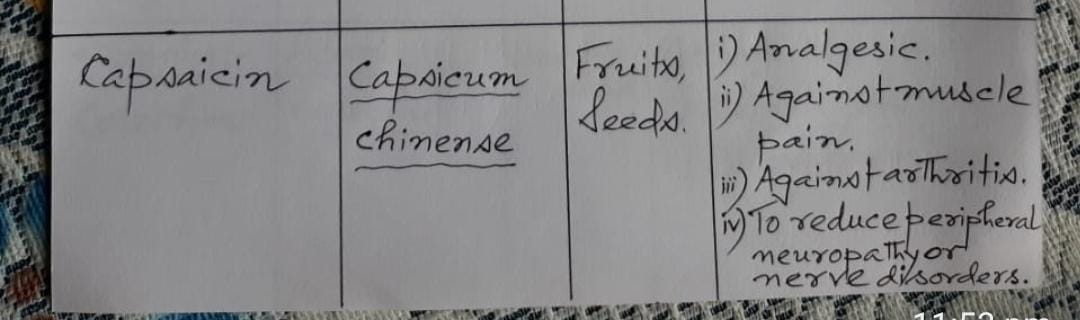 Capsaicin
Capsicum
chinense
Fruits,
Seeds.
i) Analgesic.
ii) Against muscle
pain.
iii) Against arthritis.
iv) To reduce peripheral
neuropathy or
nerve disorders.